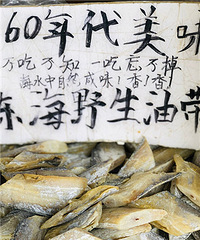 60年代美味
不吃不知 一吃忘不掉
海水中自然咸味!香!香
东海野生油带